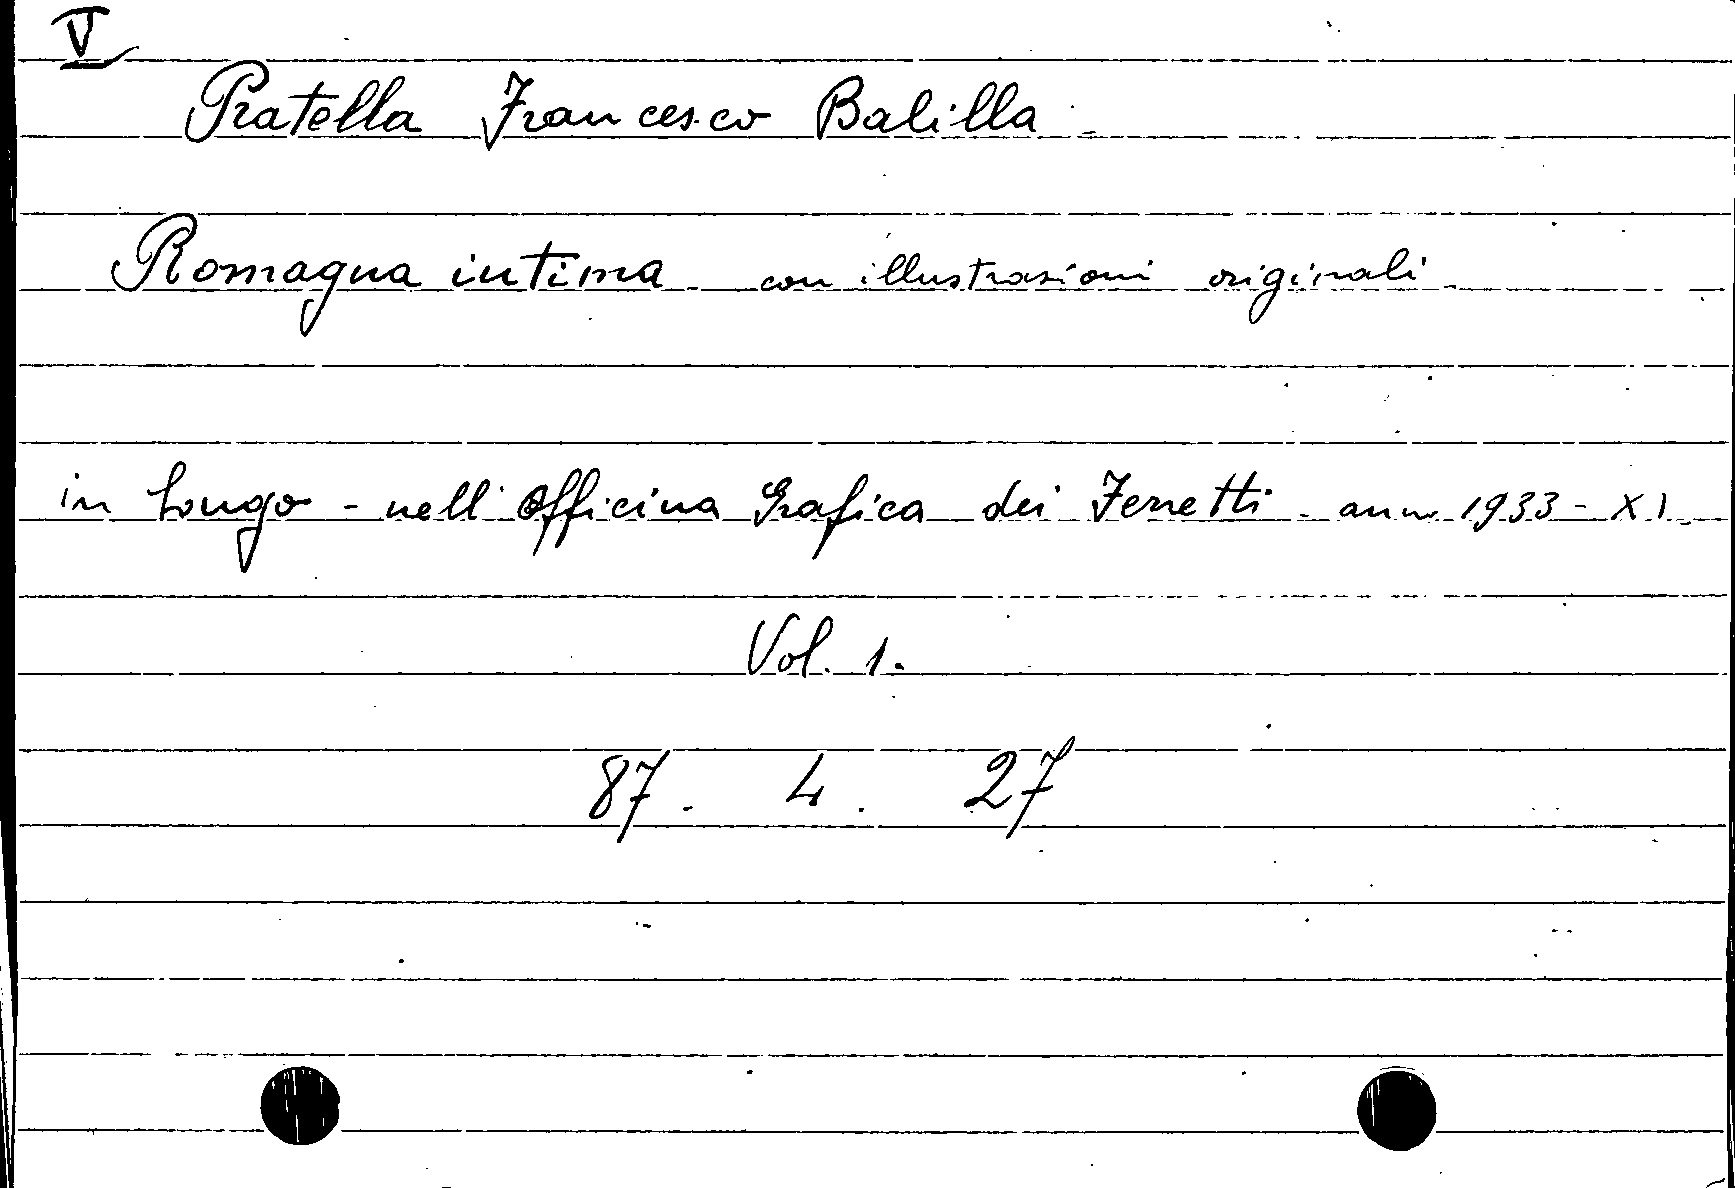 V
Pratella Francesco Balilla.
Romagna intima con illustrazioni originali.
in Longo - nell'Officina Grafica dei Ferretti - anno 1933 - XI.
Vol. 1.
87. 4. 27